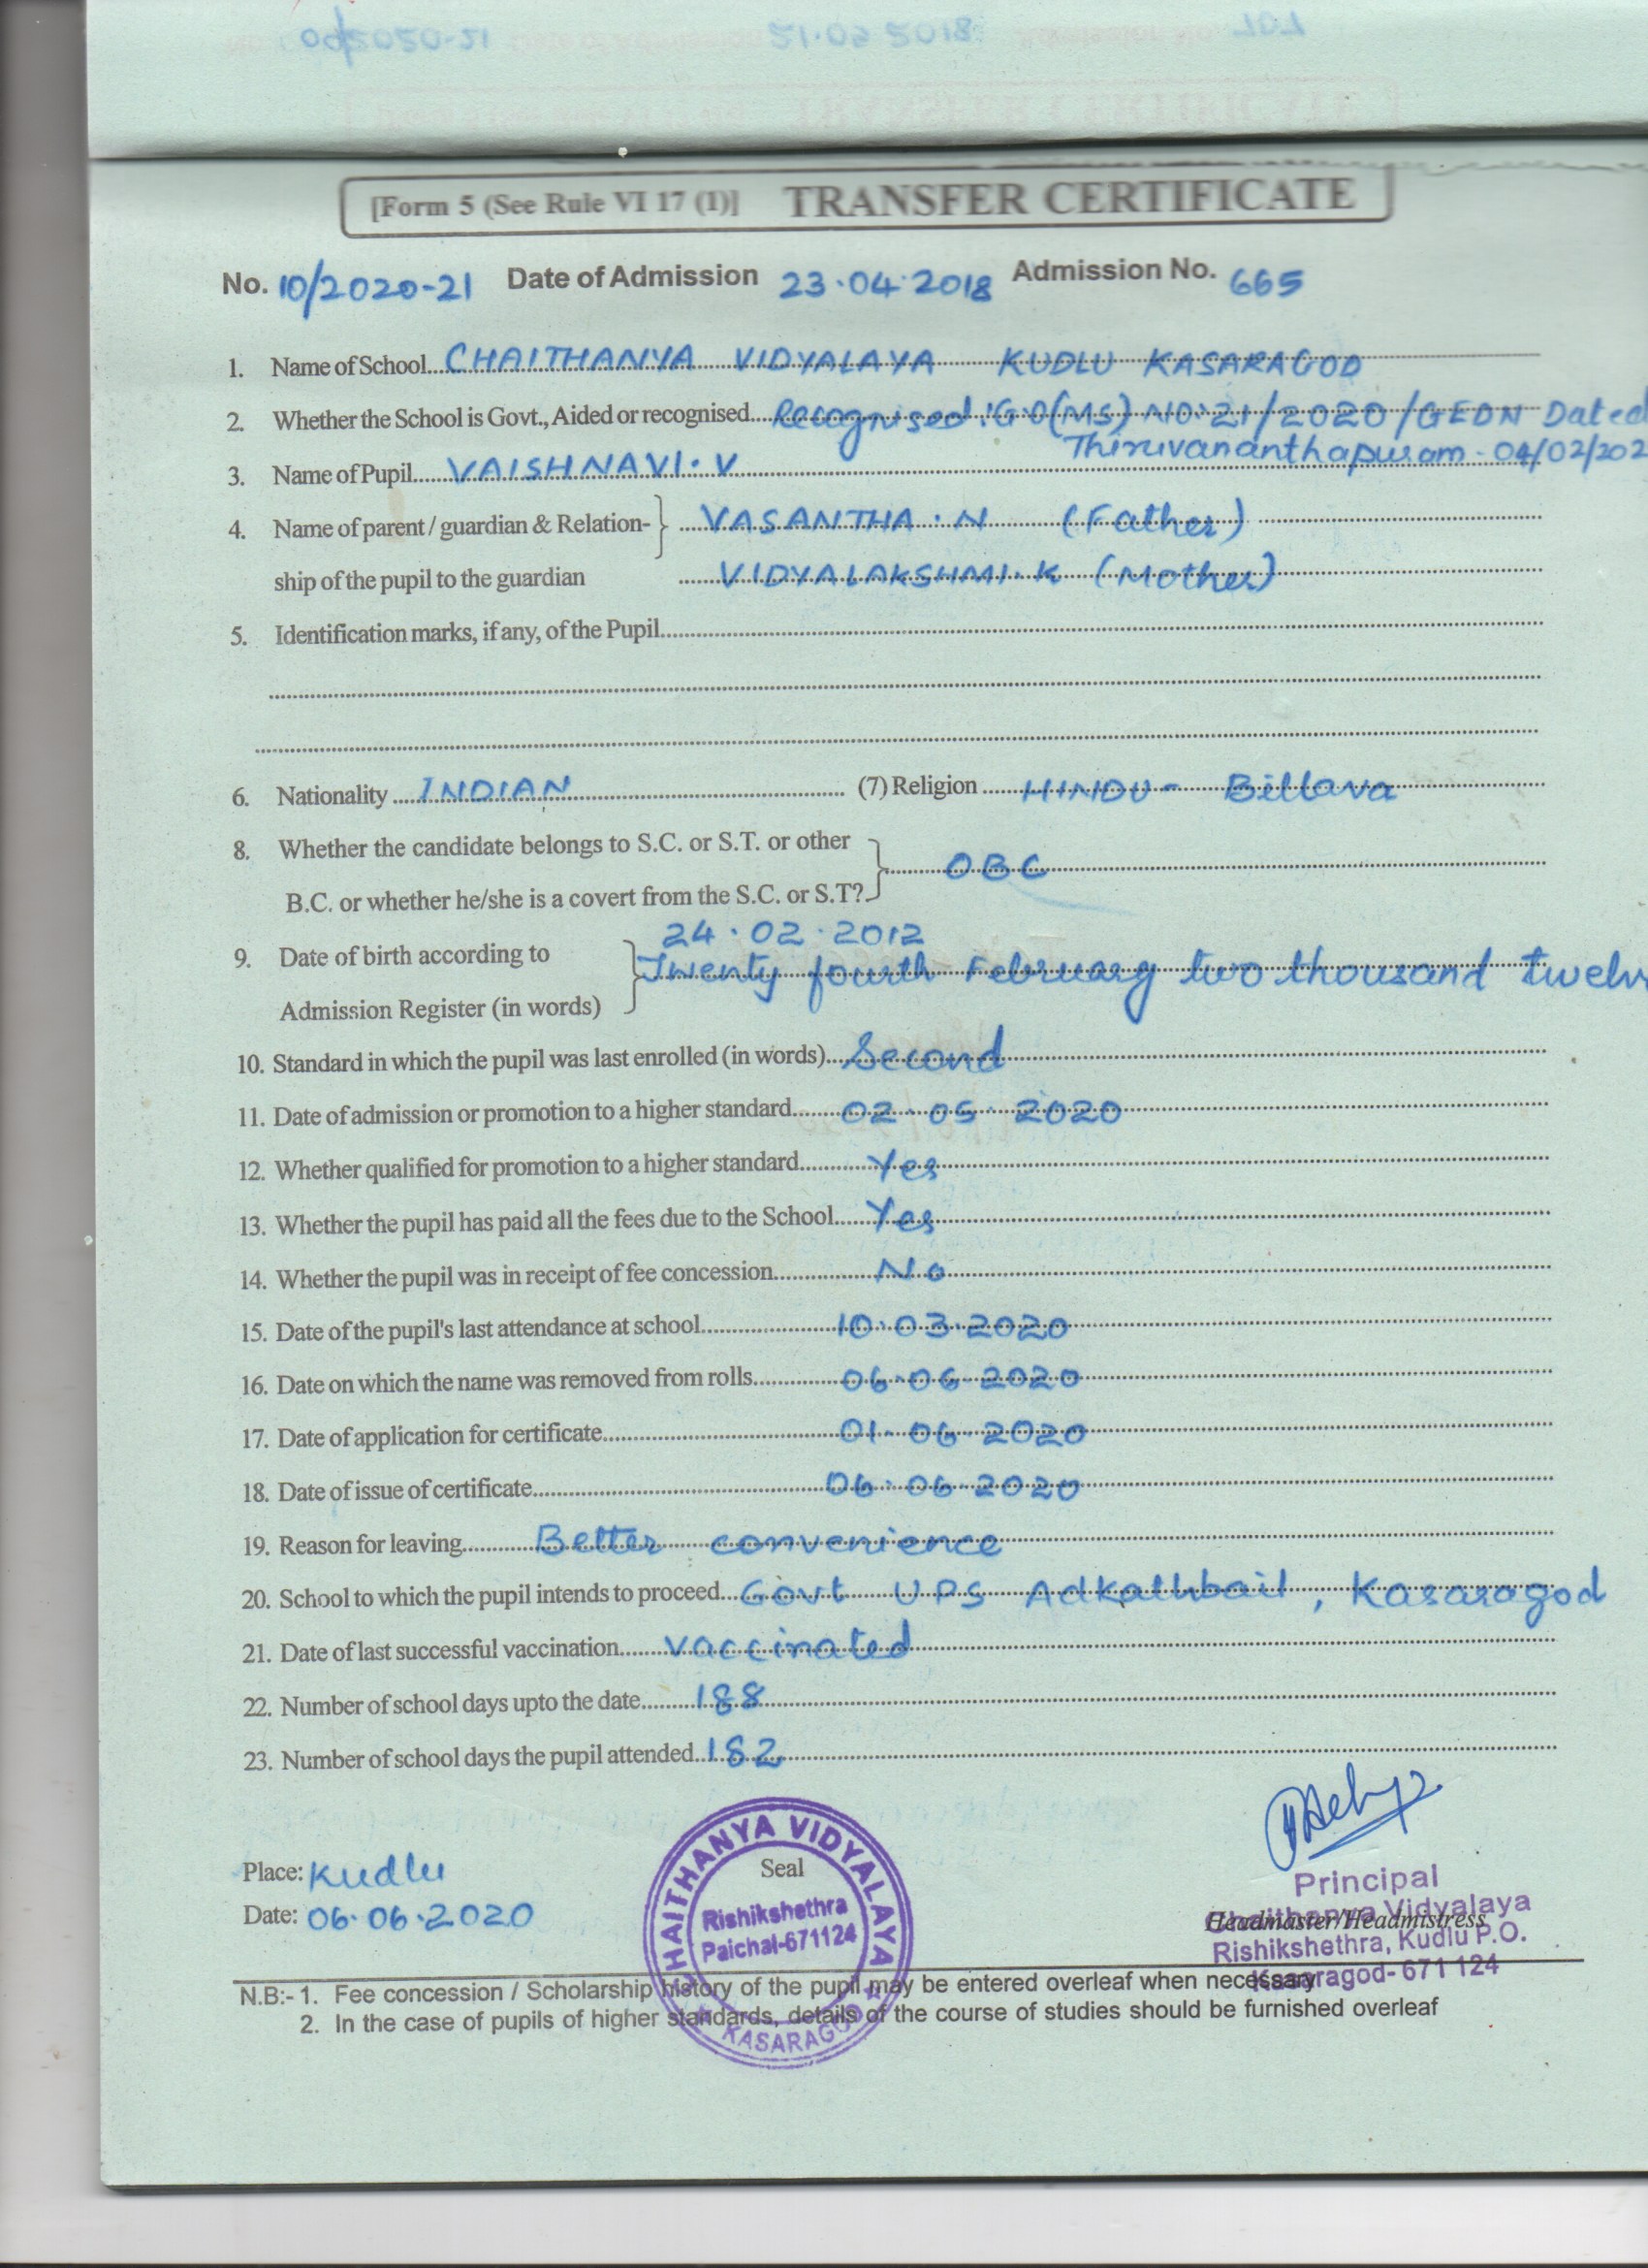 [Form 5 (See Rule VI 17 (1)] TRANSFER CERTIFICATE
No. 10/2020-21 Date of Admission 23.04.2018 Admission No. 665
1. Name of School CHAITHANYA VIDYALAYA KUDLU KASARAGOD
2. Whether the School is Govt., Aided or recognised Recognised:G.O(MS) NO:21/2020/GEDN Dated
Thiruvananthapuram - 04/02/202
3. Name of Pupil VAISHNAVI. V
4. Name of parent / guardian & Relation- VASANTHA . N (Father)
ship of the pupil to the guardian VIDYALAKSHMI. K (Mother)
5. Identification marks, if any, of the Pupil
6. Nationality INDIAN (7) Religion HINDU - Billava
8. Whether the candidate belongs to S.C. or S.T. or other
B.C. or whether he/she is a covert from the S.C. or S.T? OBC
24.02.2012
9. Date of birth according to Twenty fourth February two thousand twelv
Admission Register (in words)
10. Standard in which the pupil was last enrolled (in words) Second
11. Date of admission or promotion to a higher standard 02.05.2020
12. Whether qualified for promotion to a higher standard Yes
13. Whether the pupil has paid all the fees due to the School Yes
14. Whether the pupil was in receipt of fee concession No
15. Date of the pupil's last attendance at school 10.03.2020
16. Date on which the name was removed from rolls 06-06-2020
17. Date of application for certificate 01-06-2020
18. Date of issue of certificate 06.06.2020
19. Reason for leaving Better convenience
20. School to which the pupil intends to proceed Govt UPS Adkathbail, Kasaragod
21. Date of last successful vaccination vaccinated
22. Number of school days upto the date 188
23. Number of school days the pupil attended 182
CHAITHANYA VIDYALAYA
Seal
Rishikshethra
Paichal-671124
KASARAGOD
Place: Kudlu
Date: 06.06.2020
Principal
Chaithanya Vidyalaya
Headmaster/Headmistress
Rishikshethra, Kudlu P.O.
Kasaragod- 671 124
N.B:- 1. Fee concession / Scholarship history of the pupil may be entered overleaf when necessary
2. In the case of pupils of higher standards, details of the course of studies should be furnished overleaf